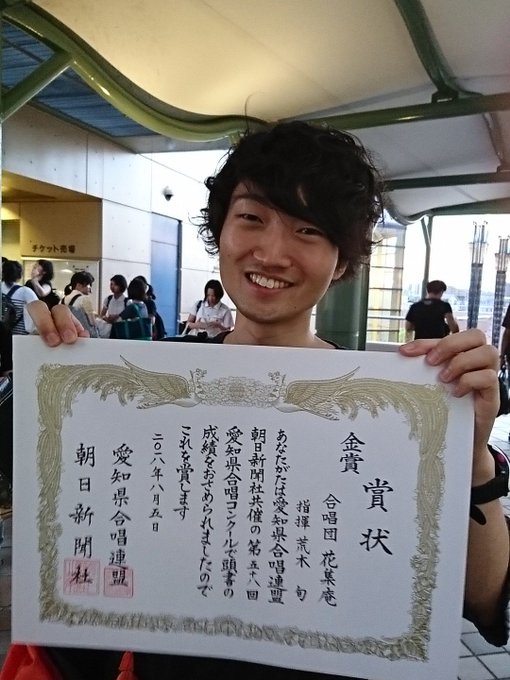 チケット売場
賞状
金賞
合唱団 花集庵
指揮 荒木 旬
あなたがたは愛知県合唱連盟
朝日新聞社共催の第五十八回
愛知県合唱コンクールで頭書の
成績をおさめられましたので
これを賞します
二〇一八年八月五日
愛知県合唱連盟
朝日新聞社